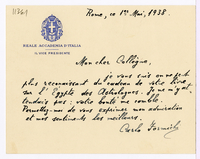 11364
Rome, ce 1er Mai, 1938.
REALE ACCADEMIA D'ITALIA
IL VICE PRESIDENTE
Mon cher Collègue,
Je vous suis on ne peut
plus reconnaissant du cadeau de votre livre
sur l'Egypte des Astrologues. Je ne m'y at-
tendais pas: votre bonté me comble.
Permettez-moi de vous exprimer mon admiration
et mes sentiments les meilleurs.
Carlo Formichi